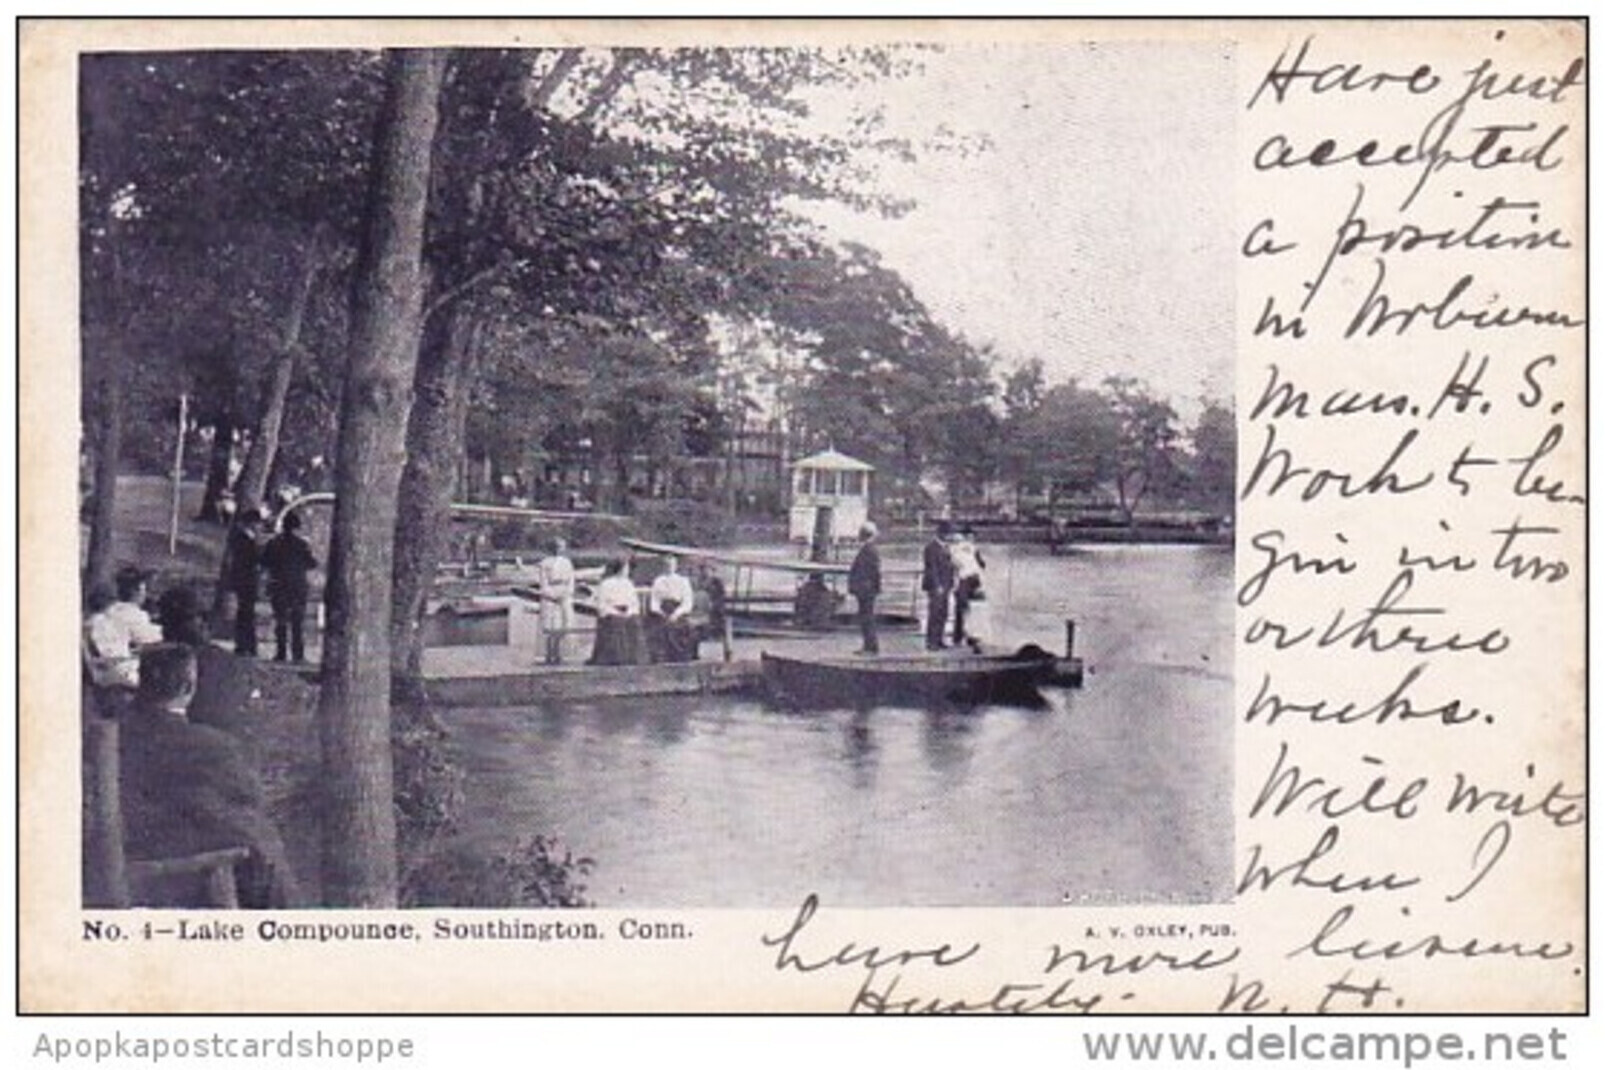 Have just
accepted
a position
in Woburn
Mass. H. S.
Work to be-
gin in two
or three
weeks.
Will write
when I
have more leisure.
Heartily - N. H.
No. 4—Lake Compounce, Southington, Conn.
A. Y. OXLEY, PUB.
Apopkapostcardshoppe
www.delcampe.net